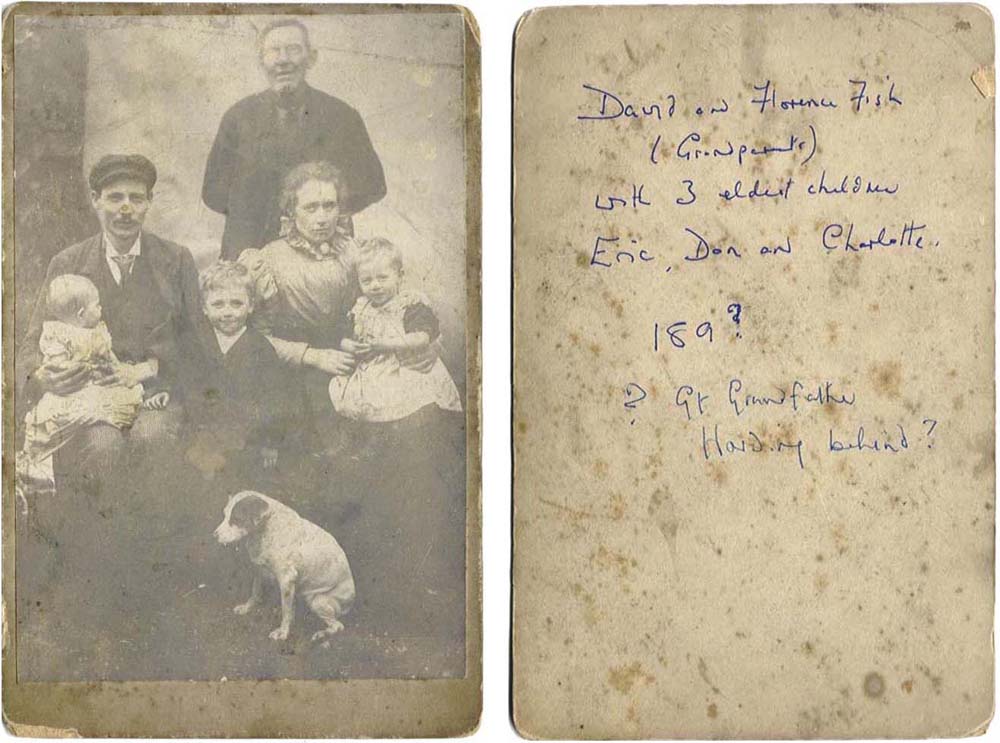 David and Florence Fish
(Grandparents)
with 3 eldest children
Eric, Don and Charlotte.
189?
? Gt Grandfather
Harding behind?